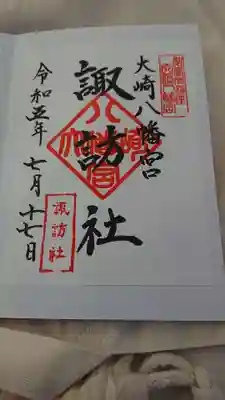 大崎八幡宮
諏訪社
令和五年七月十七日
諏訪社